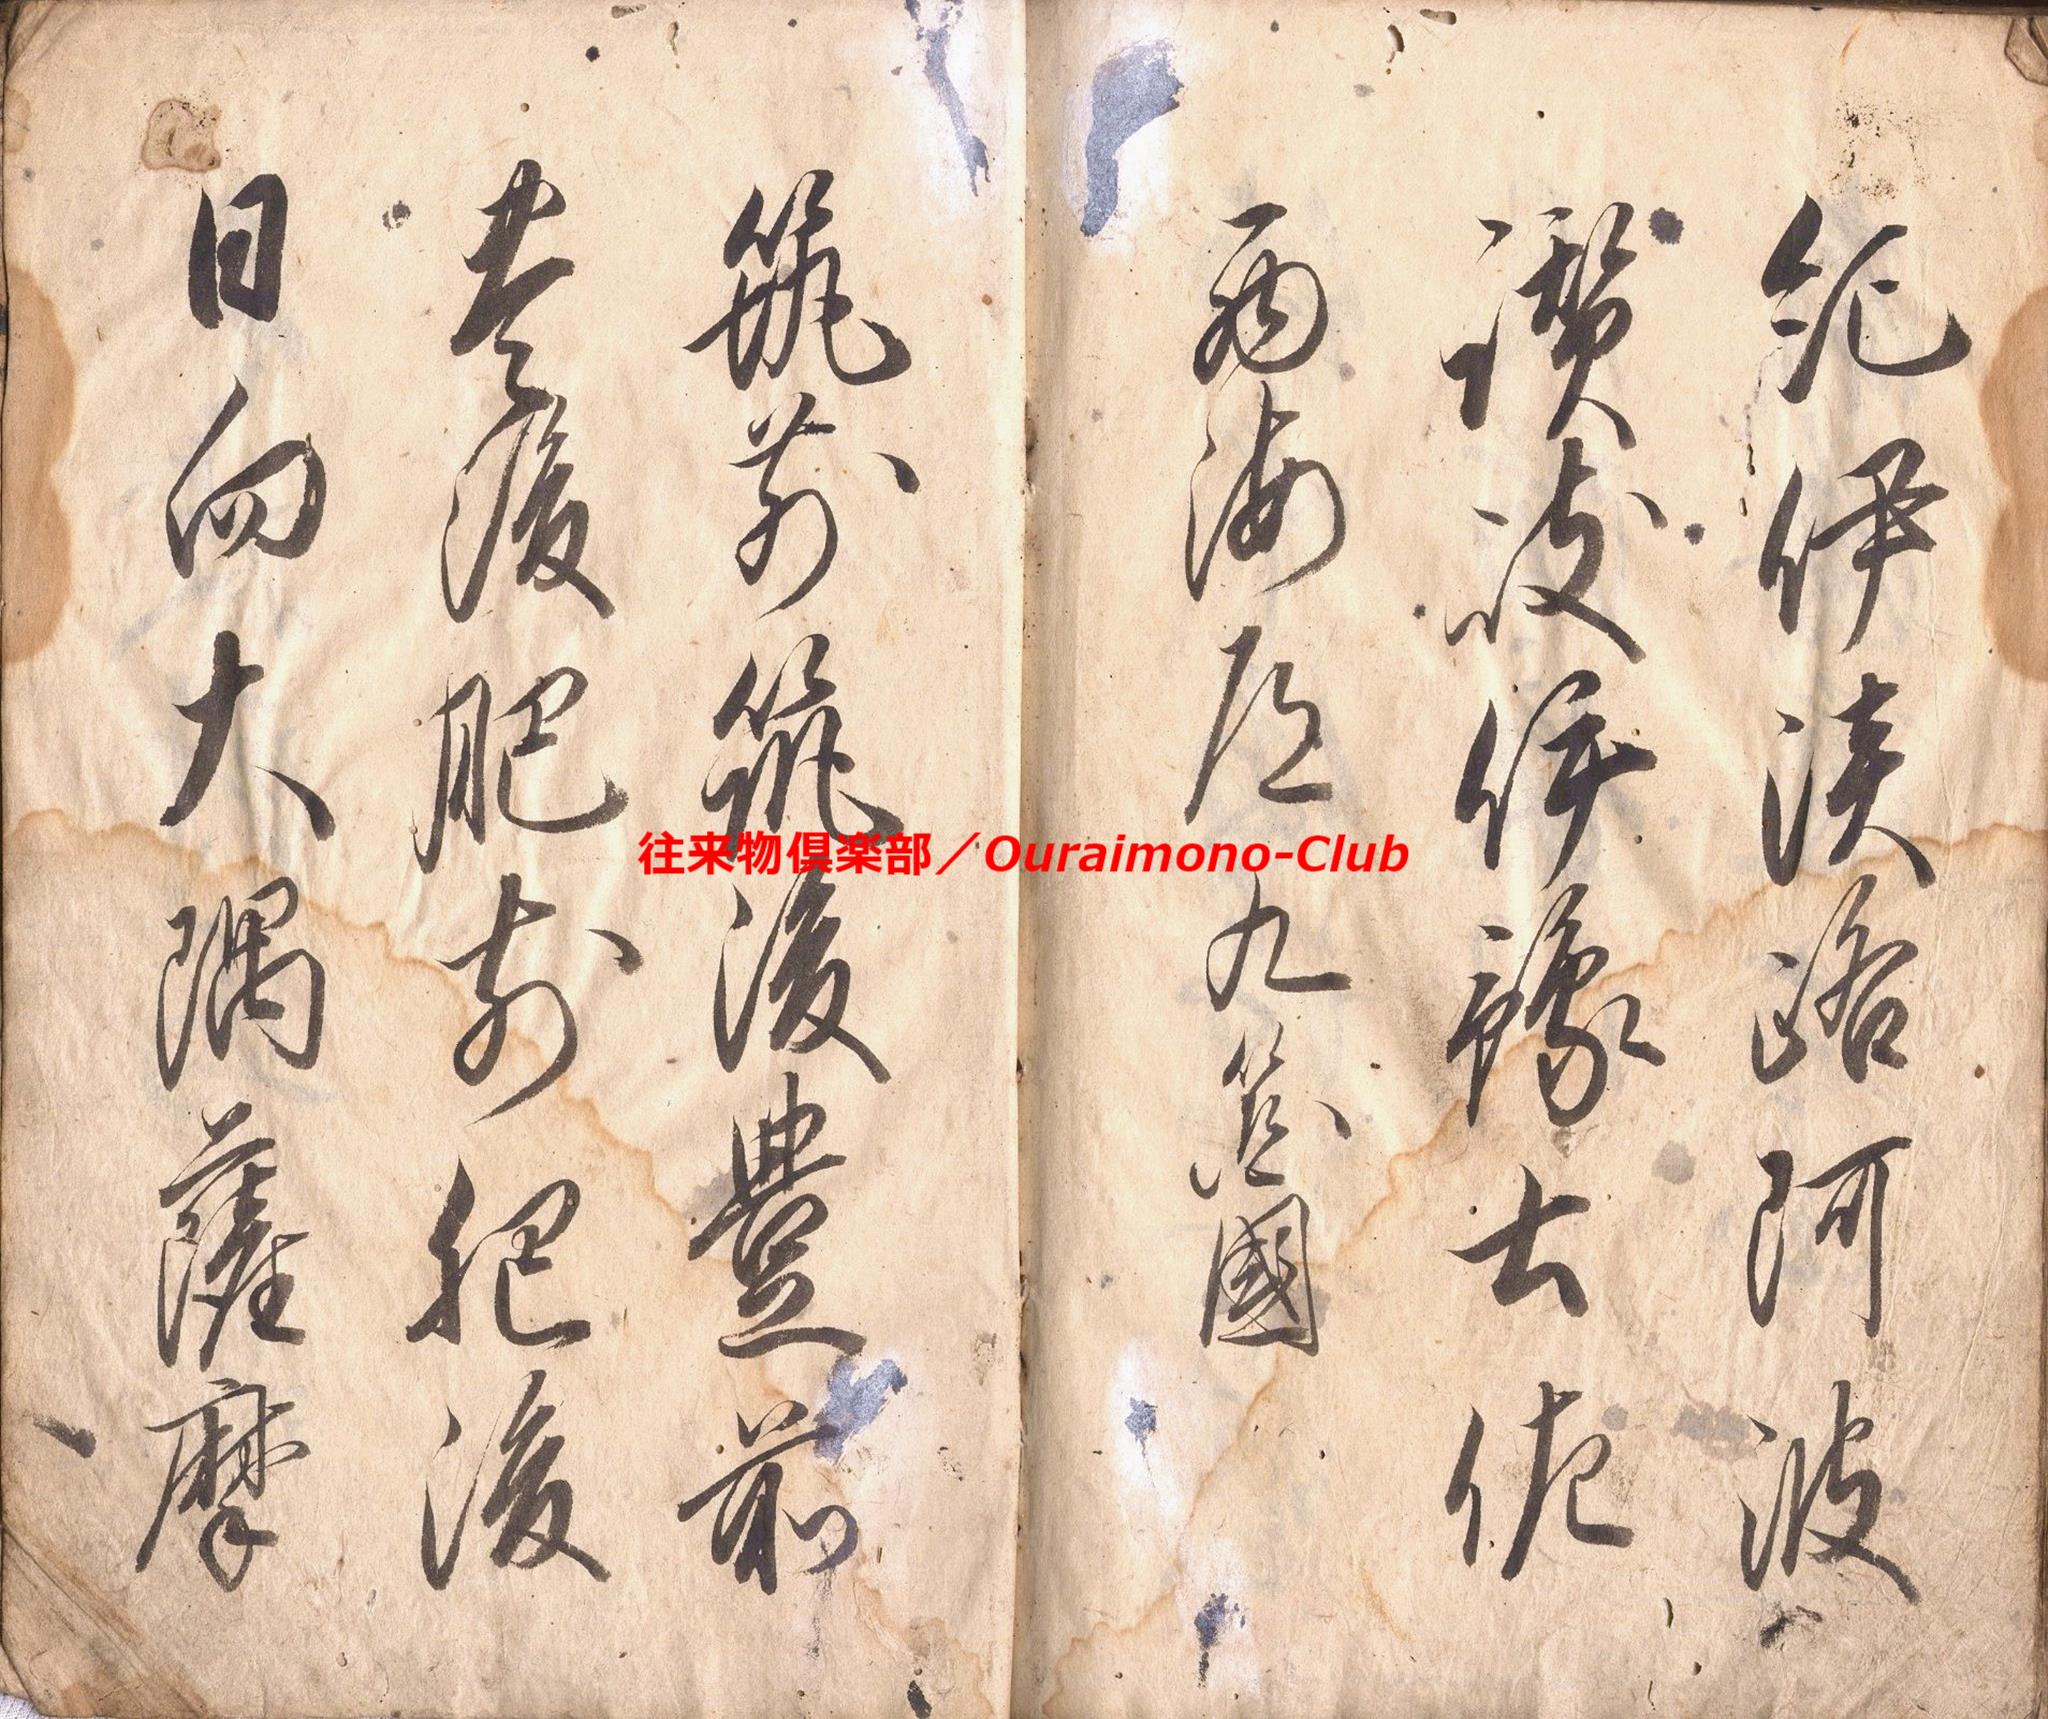 紀伊淡路阿波
讃岐伊豫土佐
西海道九箇國
筑前筑後豊前
豊後肥前肥後
日向大隅薩摩
往来物倶楽部／Ouraimono-Club